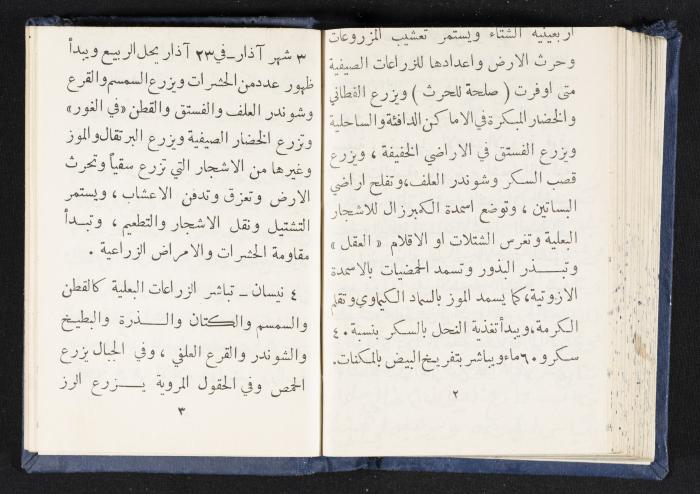 اربعينية الشتاء ويستمر تعشيب المزروعات
وحرث الارض واعدادها للزراعات الصيفية
متى اوفرت ( صلحة للحرث ) ويزرع القطاني
والخضار المبكرة في الاماكن الدافئة والساحلية
ويزرع الفستق في الاراضي الخفيفة ، ويزرع
قصب السكر وشوندر العلف، وتفلح اراضي
البساتين ، وتوضع اسمدة الكمبرزال للاشجار
البعلية وتغرس الشتلات او الاقلام « العقل »
وتبـذر البذور وتسمد الحمضيات بالاسمدة
الازوتية، كما يسمد الموز بالسماد الكيماوي وتقلم
الكرمة، ويبدأ تغذية النحل بالسكر بنسبة ٤٠
سكر و ٦٠ ماء ويباشر بتفريخ البيض بالمكنات.
٢
٣ شهر آذار ـ في ٢٣ آذار يحل الربيع ويبدأ
ظهور عدد من الحشرات ويزرع السمسم والقرع
وشوندر العلف والفستق والقطن «في الغور»
وتزرع الخضار الصيفية ويزرع البرتقال والموز
وغيرها من الاشجار التي تزرع سقياً وتحرث
الارض وتعزق وتدفن الاعشاب ، ويستمر
التشتيل ونقل الاشجار والتطعيم ، وتبـدأ
مقاومة الحشرات والامراض الزراعية .
٤ نيسان ـ تباشر الزراعات البعلية كالقطن
والسمسم والكتان والـذرة والبطيخ
والشوندر والقرع العلفي ، وفي الجبال يزرع
الحمص وفي الحقول المروية يـزرع الرز
٣